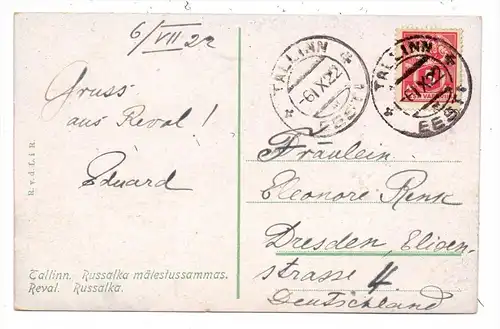 6/VII 22
Gruss
aus Reval!
Eduard
R. v. d. L. i. R.
Tallinn. Russalka mälestussammas.
Reval. Russalka.
TALLINN
-6 IX 22
EESTI
TALLINN
-6 IX 22
EESTI
Fräulein
Eleonore Renk
Dresden, Elisen-
strasse 4.
Deutschland